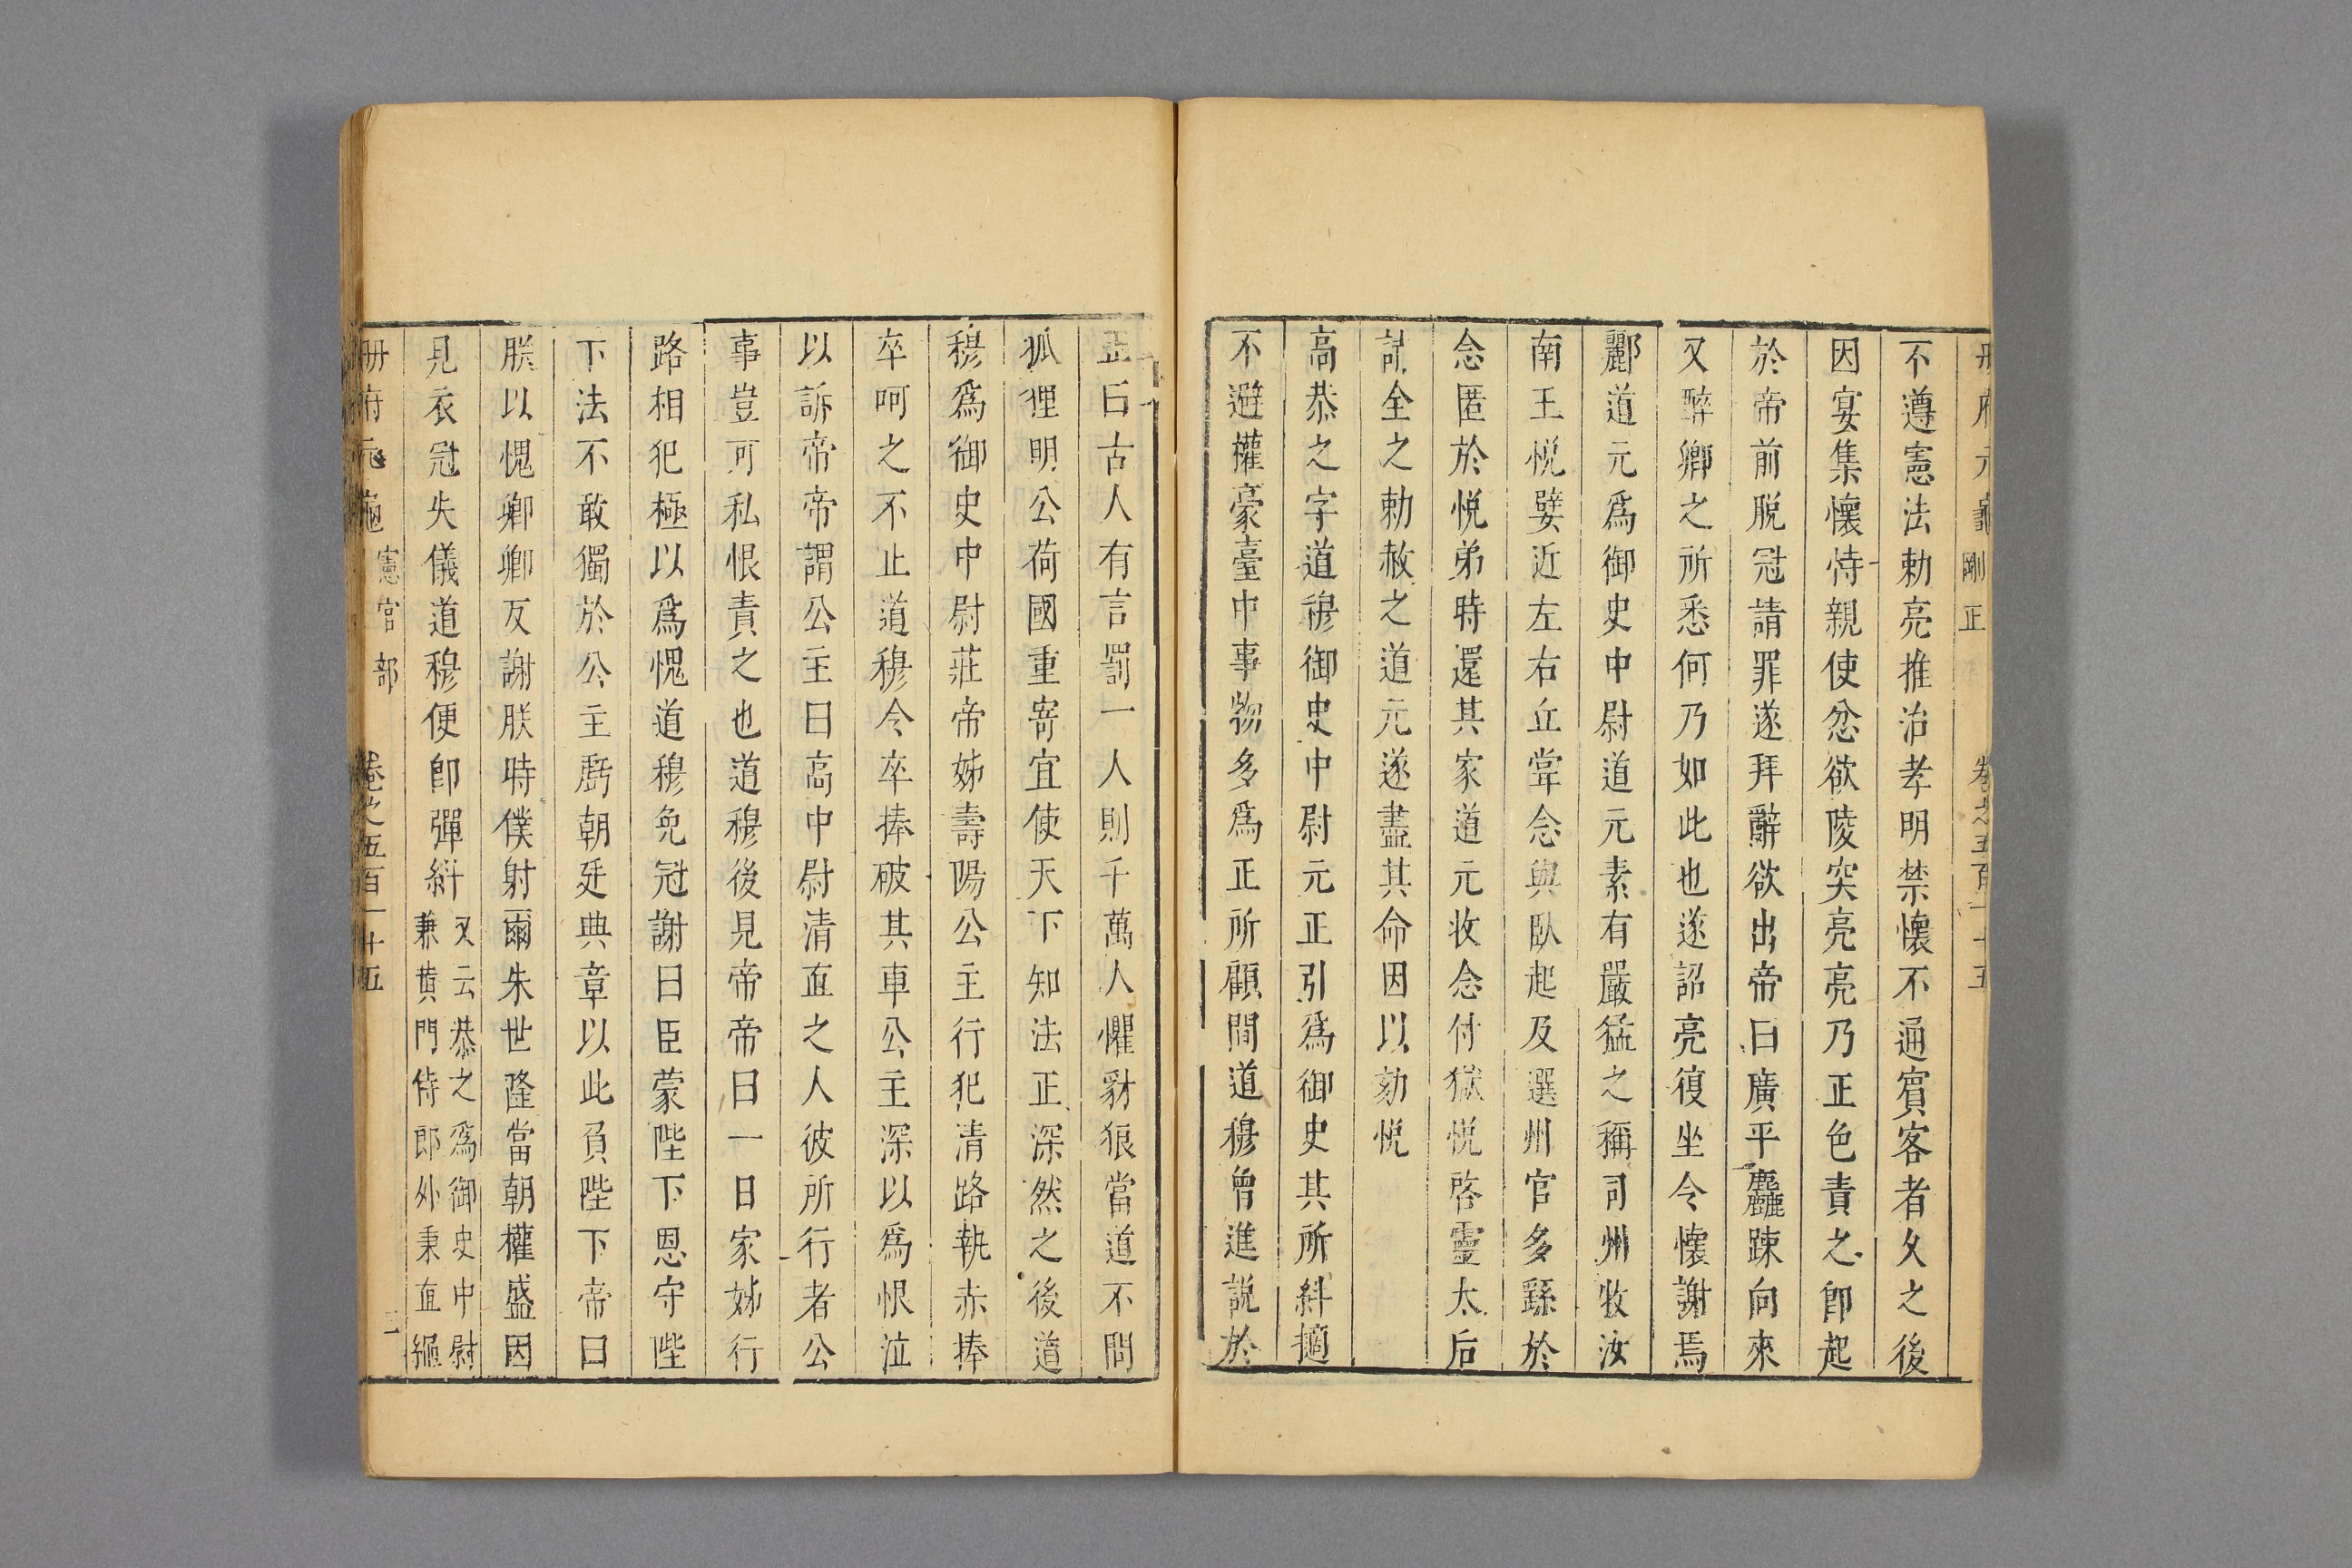 冊府元龜 剛正 卷之五百一十五
不遵憲法勅亮推治孝明禁懷不通賔客者久之後
因宴集懷恃親使忿欲陵突亮亮乃正色責之即起
於帝前脱冠請罪遂拜辭欲出帝曰廣平麤踈向來
又醉卿之所悉何乃如此也遂詔亮復坐令懷謝焉
酈道元爲御史中尉道元素有嚴猛之稱司州牧汝
南王悦嬖近左右丘甞念與臥起及選州官多繇於
念匿於悦弟時還其家道元收念付獄悦啓靈太后
請全之勅赦之道元遂盡其命因以劾悦
高恭之字道穆御史中尉元正引爲御史其所糾擿
不避權豪臺中事物多爲正所顧問道穆曾進説於
正曰古人有言罰一人則千萬人懼豺狼當道不問
狐狸明公荷國重寄宜使天下知法正深然之後道
穆爲御史中尉莊帝姊壽陽公主行犯清路執赤捧
卒呵之不止道穆令卒捧破其車公主深以爲恨泣
以訴帝帝謂公主曰高中尉清直之人彼所行者公
事豈可私恨責之也道穆後見帝帝曰一日家姊行
路相犯極以爲愧道穆免冠謝曰臣蒙陛下恩守陛
下法不敢獨於公主虧朝廷典章以此負陛下帝曰
朕以愧卿卿反謝朕時僕射爾朱世隆當朝權盛因
見衣冠失儀道穆便即彈糾
又云恭之爲御史中尉
兼黄門侍郎外秉直繩
冊府元龜 憲官部 卷之五百一十五 二